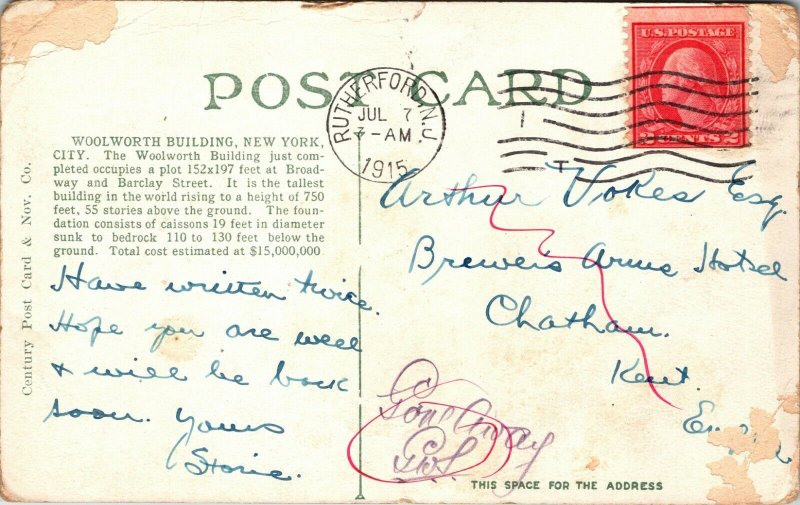 POST CARD
RUTHERFORD, N.J.
JUL 7
7-AM
1915
U.S. POSTAGE
2 CENTS 2
WOOLWORTH BUILDING, NEW YORK,
CITY. The Woolworth Building just com-
pleted occupies a plot 152x197 feet at Broad-
way and Barclay Street. It is the tallest
building in the world rising to a height of 750
feet, 55 stories above the ground. The foun-
dation consists of caissons 19 feet in diameter
sunk to bedrock 110 to 130 feet below the
ground. Total cost estimated at $15,000,000
Century Post Card & Nov. Co.
Have written twice.
Hope you are well
& will be back
soon. Yours
Arthur Vokes Esq.
Brewers Arms Hotel
Chatham.
Kent.
Gone Away
THIS SPACE FOR THE ADDRESS